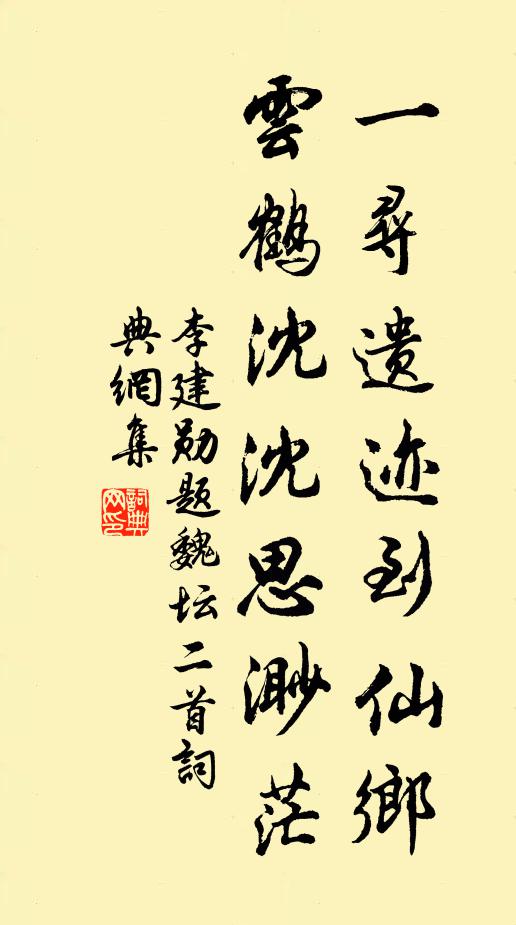 一尋遗迹到仙鄉
雲鶴沈沈思渺茫
李建勋题魏坛二首詞
典網集
詞典
网印